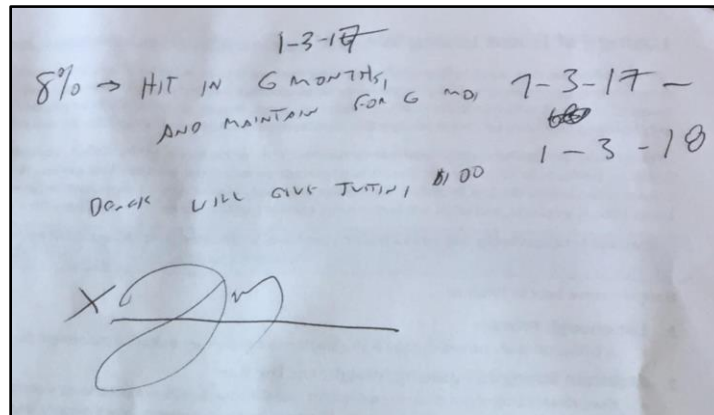 1-3-17
8% → HIT IN 6 MONTHS,
AND MAINTAIN FOR 6 MO, 7-3-17 -
1-3-18
WILL GIVE $100
X